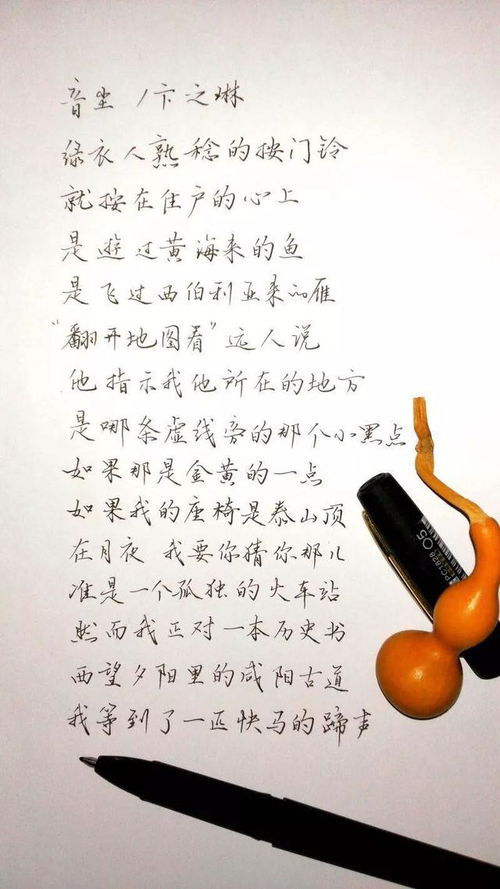 音尘 / 卞之琳
绿衣人熟稔的按门铃
就按在住户的心上
是游过黄海来的鱼
是飞过西伯利亚来的雁
“翻开地图看”远人说
他指示我他所在的地方
是哪条虚线旁的那个小黑点
如果那是金黄的一点
如果我的座椅是泰山顶
在月夜 我要你猜你那儿
准是一个孤独的火车站
然而我正对一本历史书
西望夕阳里的咸阳古道
我等到了一匹快马的蹄声
PC1828
0.5